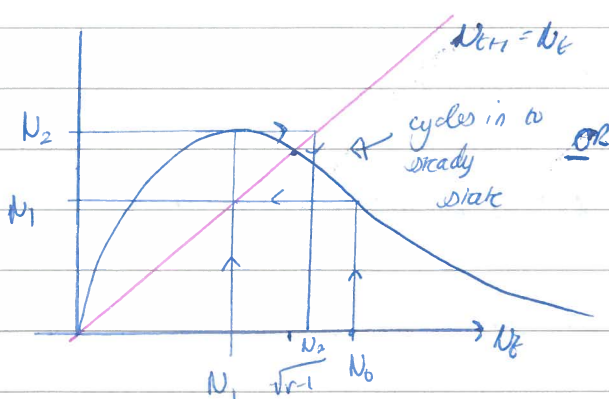 N_{t+1} = N_t
N_2
cycles in to
OR
steady
state
N_1
N_t
N_2
N_1
√r-1
N_0